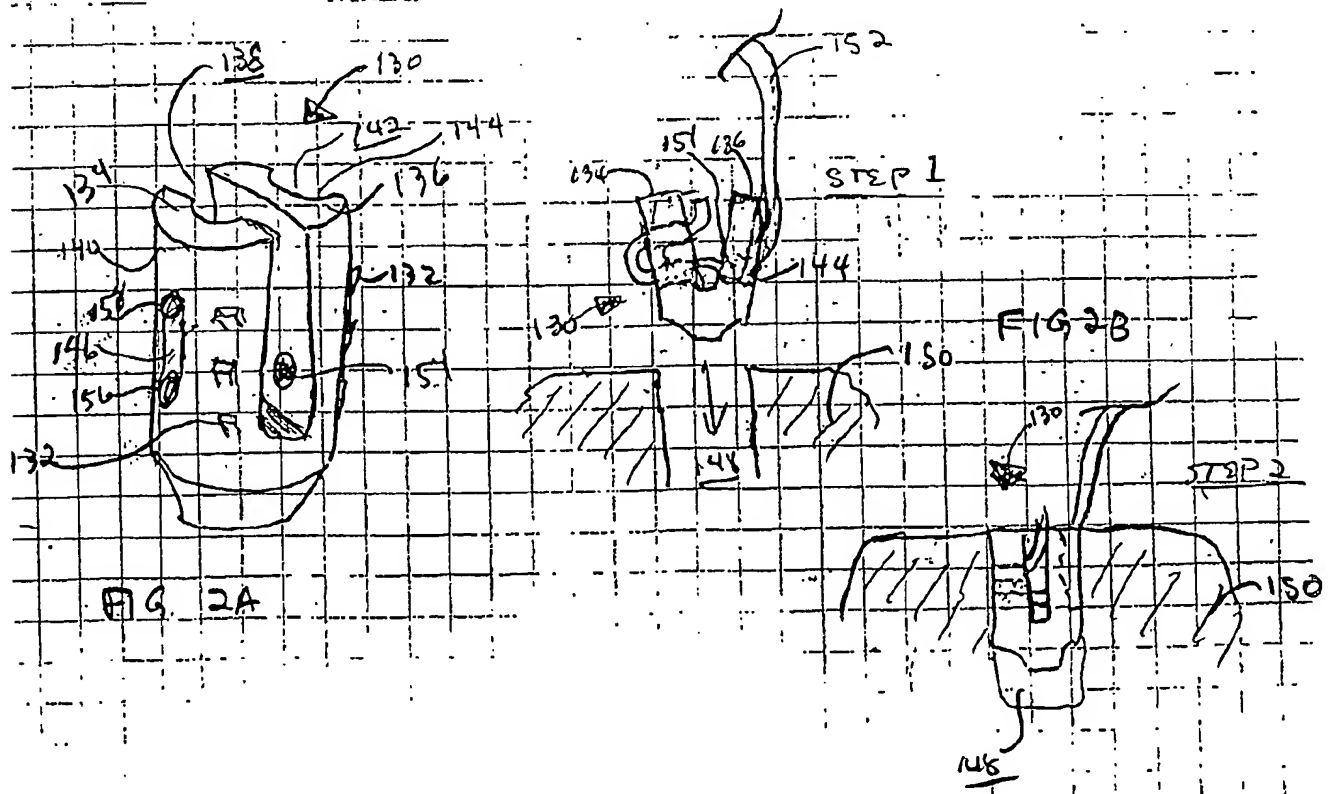 138
130
142
144
134
136
140
132
158
146
156
151
132
FIG. 2A
152
151
136
134
STEP 1
144
130
FIG 2B
150
148
130
STEP 2
150
148